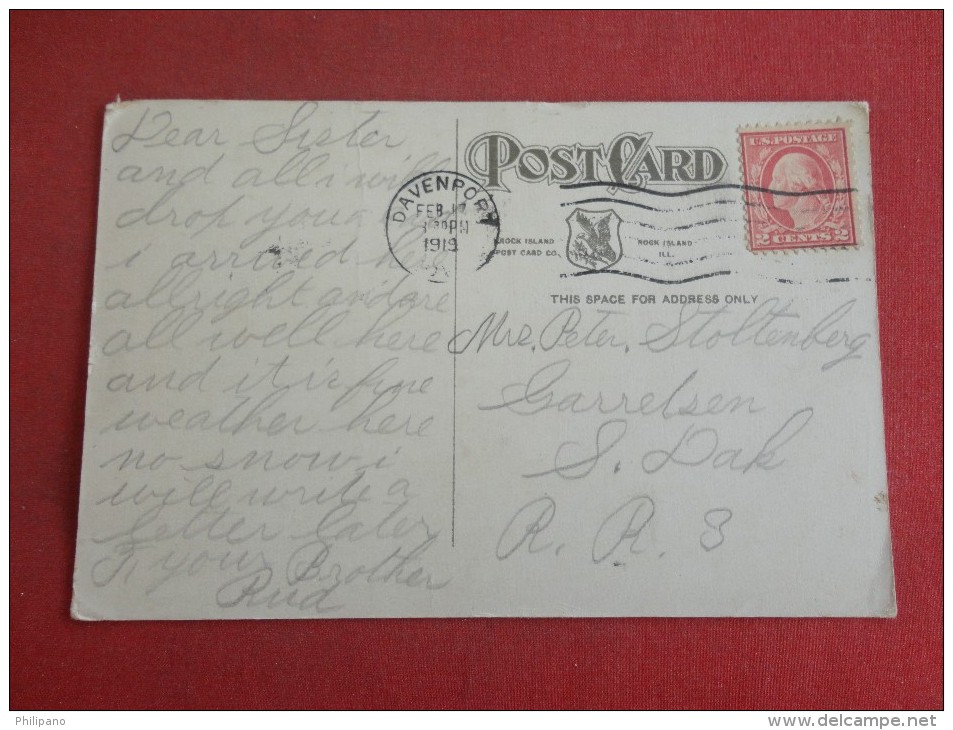 Dear Sister
and all i will
drop you a
i arrived here
allright and are
all well here
and it is fine
weather here
no snow i
will write a
letter later
your Brother
Rud
POST CARD
DAVENPORT
FEB 17
PM
1919
ROCK ISLAND
POST CARD CO.
ROCK ISLAND
ILL.
U.S. POSTAGE
2 CENTS 2
THIS SPACE FOR ADDRESS ONLY
Mrs. Peter. Stoltenberg
Garretsen
S. Dak
R. R. 3
Philipano
www.delcampe.net